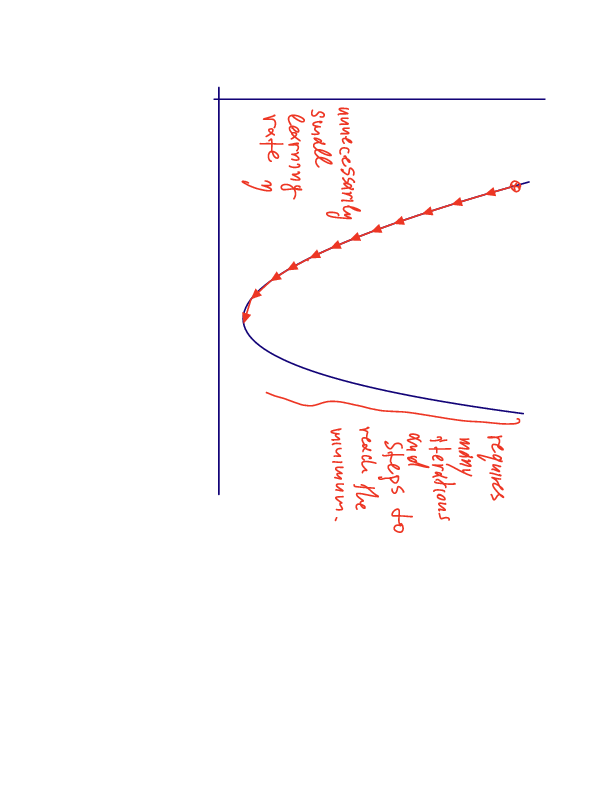 unnecessarily
small
learning
rate η
requires
many
iterations
and
steps to
reach the
minimum.